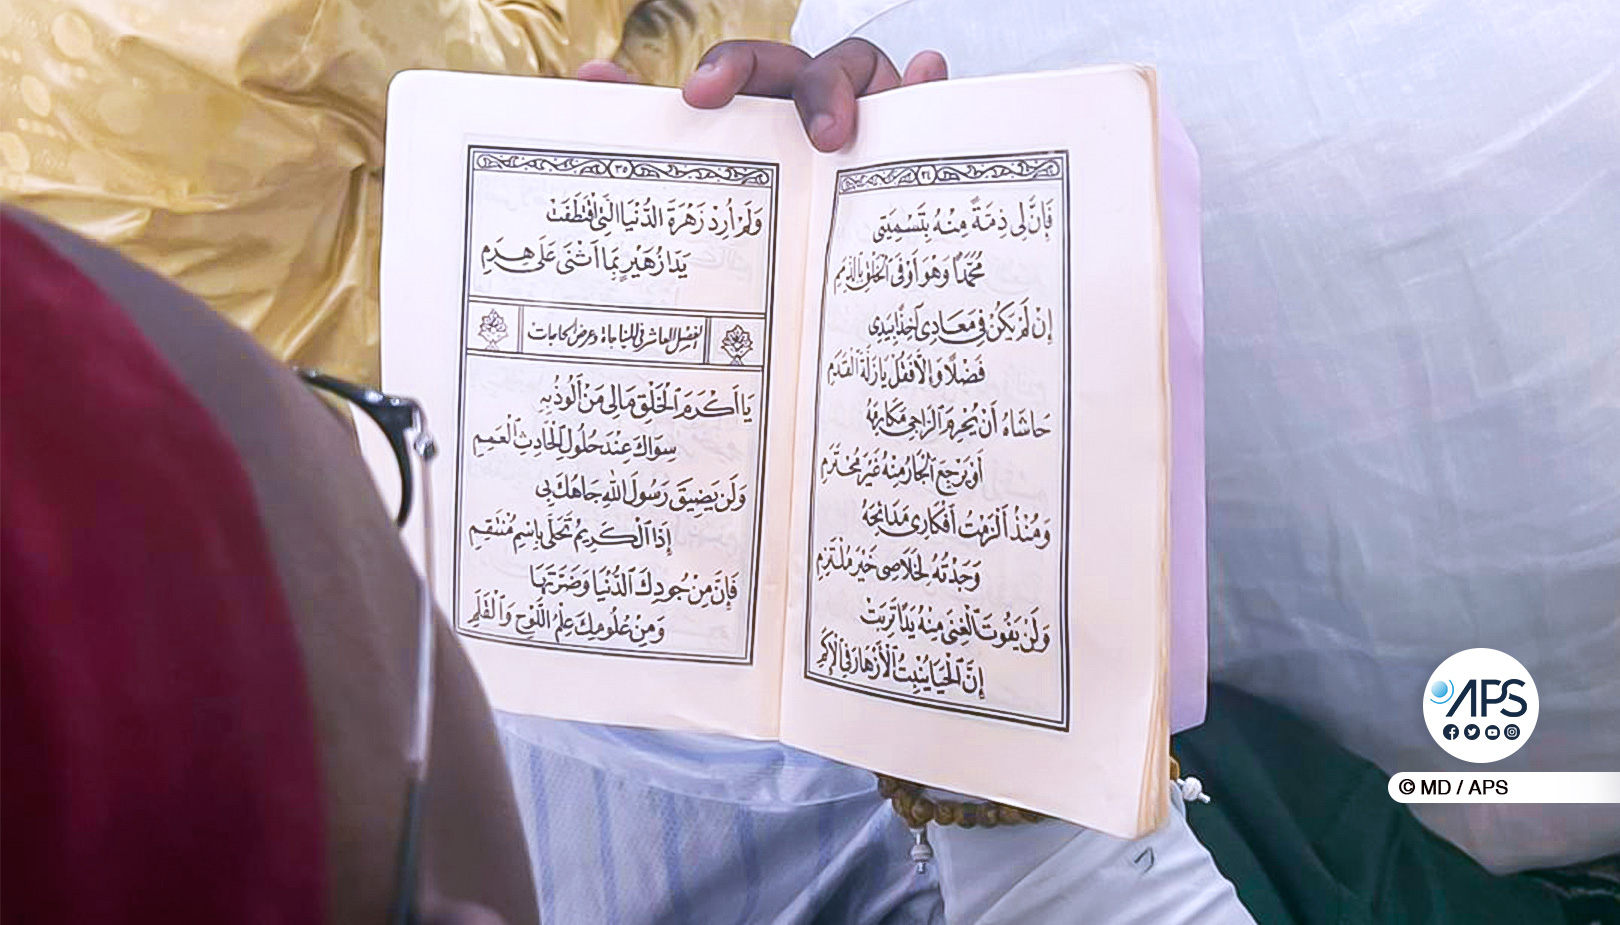 ٣٤
فَإِنَّ لِي ذِمَّةً مِنْهُ بِتَسْمِيَتِي
مُحَمَّدًا وَهْوَ أَوْفَى ٱلْخَلْقِ بِالذِّمَمِ
إِنْ لَمْ يَكُنْ فِي مَعَادِي آخِذًا بِيَدِي
فَضْلًا وَإِلَّا فَقُلْ يَا زَلَّةَ ٱلْقَدَمِ
حَاشَاهُ أَنْ يُحْرِمَ ٱلرَّاجِي مَكَارِمَهُ
أَوْ يَرْجِعَ ٱلْجَارُ مِنْهُ غَيْرَ مُحْتَرَمِ
وَمُنْذُ أَلْزَمْتُ أَفْكَارِي مَدَائِحَهُ
وَجَدْتُهُ لِخَلَاصِي خَيْرَ مُلْتَزِمِ
وَلَنْ يَفُوتَ ٱلْغِنَى مِنْهُ يَدًا تَرِبَتْ
إِنَّ ٱلْحَيَا يُنْبِتُ ٱلْأَزْهَارَ فِي ٱلْأَكَمِ
٣٥
وَلَمْ أُرِدْ زَهْرَةَ الدُّنْيَا الَّتِي اقْتَطَفَتْ
يَدَا زُهَيْرٍ بِمَا أَثْنَى عَلَى هَرِمِ
الفصل العاشر في المناجاة وعرض الحاجات
يَا أَكْرَمَ ٱلْخَلْقِ مَالِي مَنْ أَلُوذُ بِهِ
سِوَاكَ عِنْدَ حُلُولِ ٱلْحَادِثِ ٱلْعَمِمِ
وَلَنْ يَضِيقَ رَسُولَ اللهِ جَاهُكَ بِي
إِذَا ٱلْكَرِيمُ تَحَلَّى بِاسْمِ مُنْتَقِمِ
فَإِنَّ مِنْ جُودِكَ ٱلدُّنْيَا وَضَرَّتَهَا
وَمِنْ عُلُومِكَ عِلْمُ اللَّوْحِ وَٱلْقَلَمِ
APS
© MD / APS